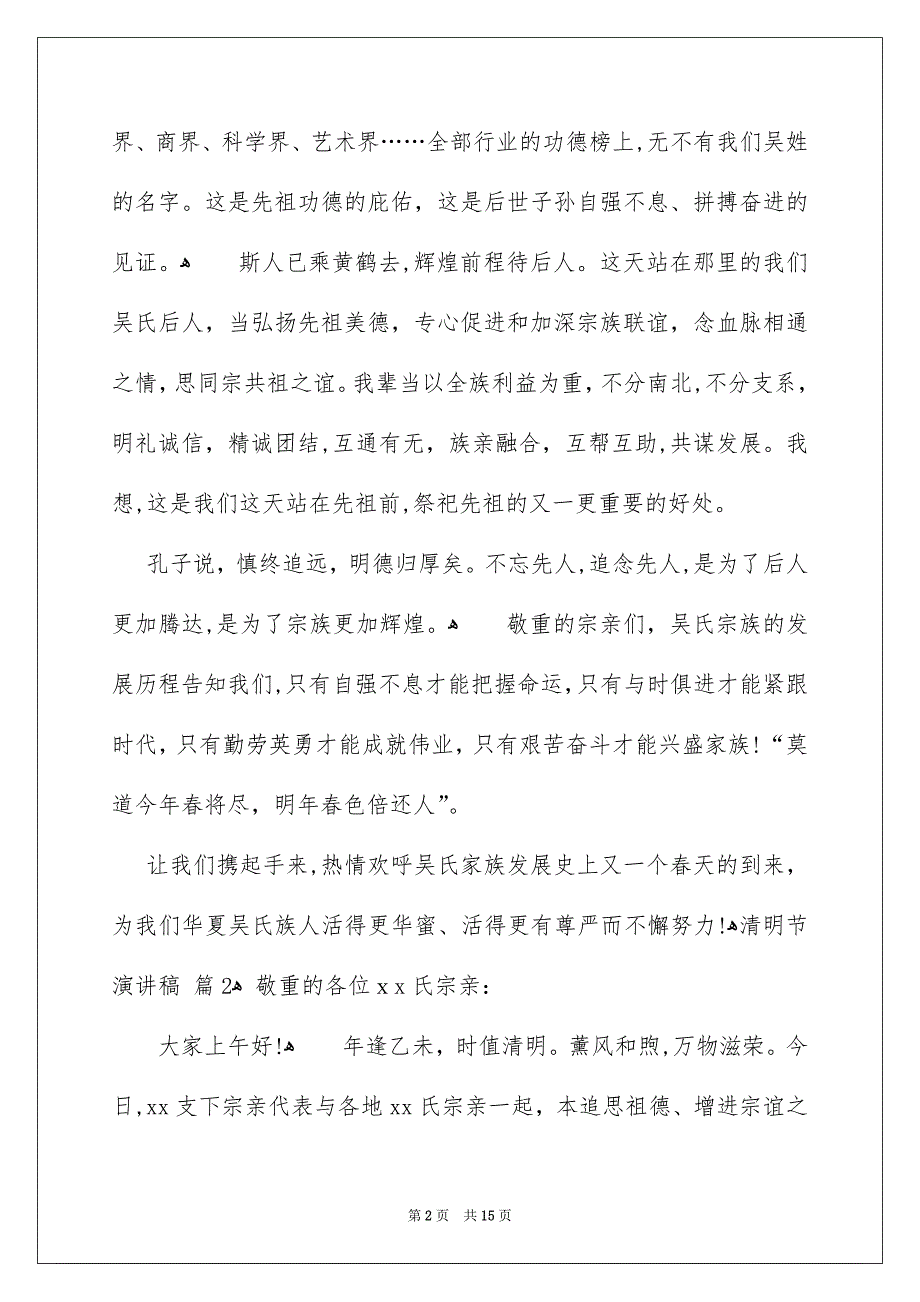 界、商界、科学界、艺术界……全部行业的功德榜上,无不有我们吴姓
的名字。这是先祖功德的庇佑，这是后世子孙自强不息、拼搏奋进的
见证。ﻫ 斯人已乘黄鹤去,辉煌前程待后人。这天站在那里的我们
吴氏后人，当弘扬先祖美德，专心促进和加深宗族联谊，念血脉相通
之情，思同宗共祖之谊。我辈当以全族利益为重，不分南北,不分支系，
明礼诚信，精诚团结,互通有无，族亲融合，互帮互助,共谋发展。我
想,这是我们这天站在先祖前,祭祀先祖的又一更重要的好处。
孔子说，慎终追远，明德归厚矣。不忘先人,追念先人,是为了后人
更加腾达,是为了宗族更加辉煌。ﻫ 敬重的宗亲们，吴氏宗族的发
展历程告知我们,只有自强不息才能把握命运，只有与时俱进才能紧跟
时代，只有勤劳英勇才能成就伟业，只有艰苦奋斗才能兴盛家族!“莫
道今年春将尽，明年春色倍还人”。
让我们携起手来,热情欢呼吴氏家族发展史上又一个春天的到来，
为我们华夏吴氏族人活得更华蜜、活得更有尊严而不懈努力!ﻫ清明节
演讲稿 篇2ﻫ 敬重的各位xx氏宗亲：
大家上午好!ﻫ 年逢乙未，时值清明。薰风和煦,万物滋荣。今
日,xx支下宗亲代表与各地xx氏宗亲一起，本追思祖德、增进宗谊之
第2页 共15页